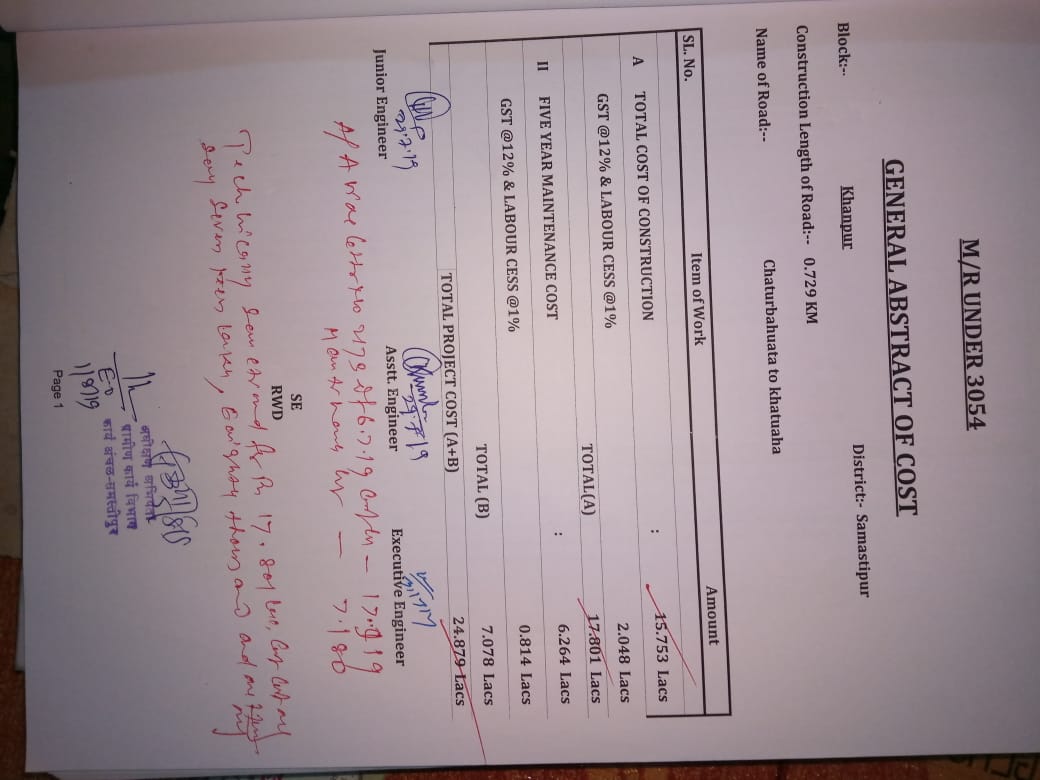 M/R UNDER 3054
GENERAL ABSTRACT OF COST
Block:-- Khanpur District:- Samastipur
Construction Length of Road:-- 0.729 KM
Name of Road:-- Chaturbahuata to khatuaha
SL. No. Item of Work Amount
A TOTAL COST OF CONSTRUCTION : 15.753 Lacs
GST @12% & LABOUR CESS @1% 2.048 Lacs
TOTAL(A) 17.801 Lacs
II FIVE YEAR MAINTENANCE COST : 6.264 Lacs
GST @12% & LABOUR CESS @1% 0.814 Lacs
TOTAL (B) 7.078 Lacs
TOTAL PROJECT COST (A+B) 24.879 Lacs
29.7.19 29.7.19
Junior Engineer Asstt. Engineer Executive Engineer
7.180
SE
RWD
Technically for Rs 17.801
अधीक्षण अभियंता
ग्रामीण कार्य विभाग
कार्य अंचल-समस्तीपुर
1/8/19
Page 1